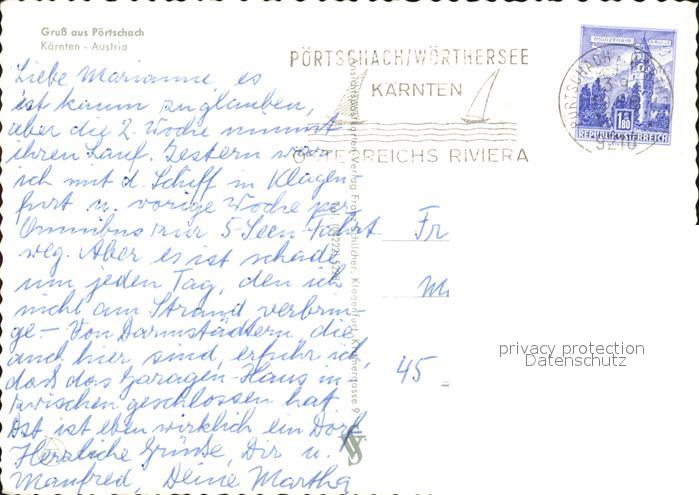 Gruß aus Pörtschach
Kärnten - Austria
Liebe Marianne, es
ist kaum zu glauben,
aber die 2. Woche nimmt
ihren Lauf. Gestern war
ich mit d. Schiff in Klagen
furt u. vorige Woche per
Omnibus zur 5 Seen-Fahrt
weg. Aber es ist schade
um jeden Tag, den ich
nicht am Strand verbrin-
ge. - Von Darmstädtern, die
auch hier sind, erfuhr ich,
daß das Garagen-Haus in-
zwischen geschlossen hat.
Ist eben wirklich ein Dorf.
Herzliche Grüße, Dir u.
Manfred, Deine Martha
PÖRTSCHACH/WÖRTHERSEE
KÄRNTEN
ÖSTERREICHS RIVIERA
PÖRTSCHACH
9210
MÜNZTURM HALL
1 S
1.80
REPUBLIK ÖSTERREICH
Verlag Franz Schilcher, Klagenfurt
Fr
M
45
privacy protection
Datenschutz